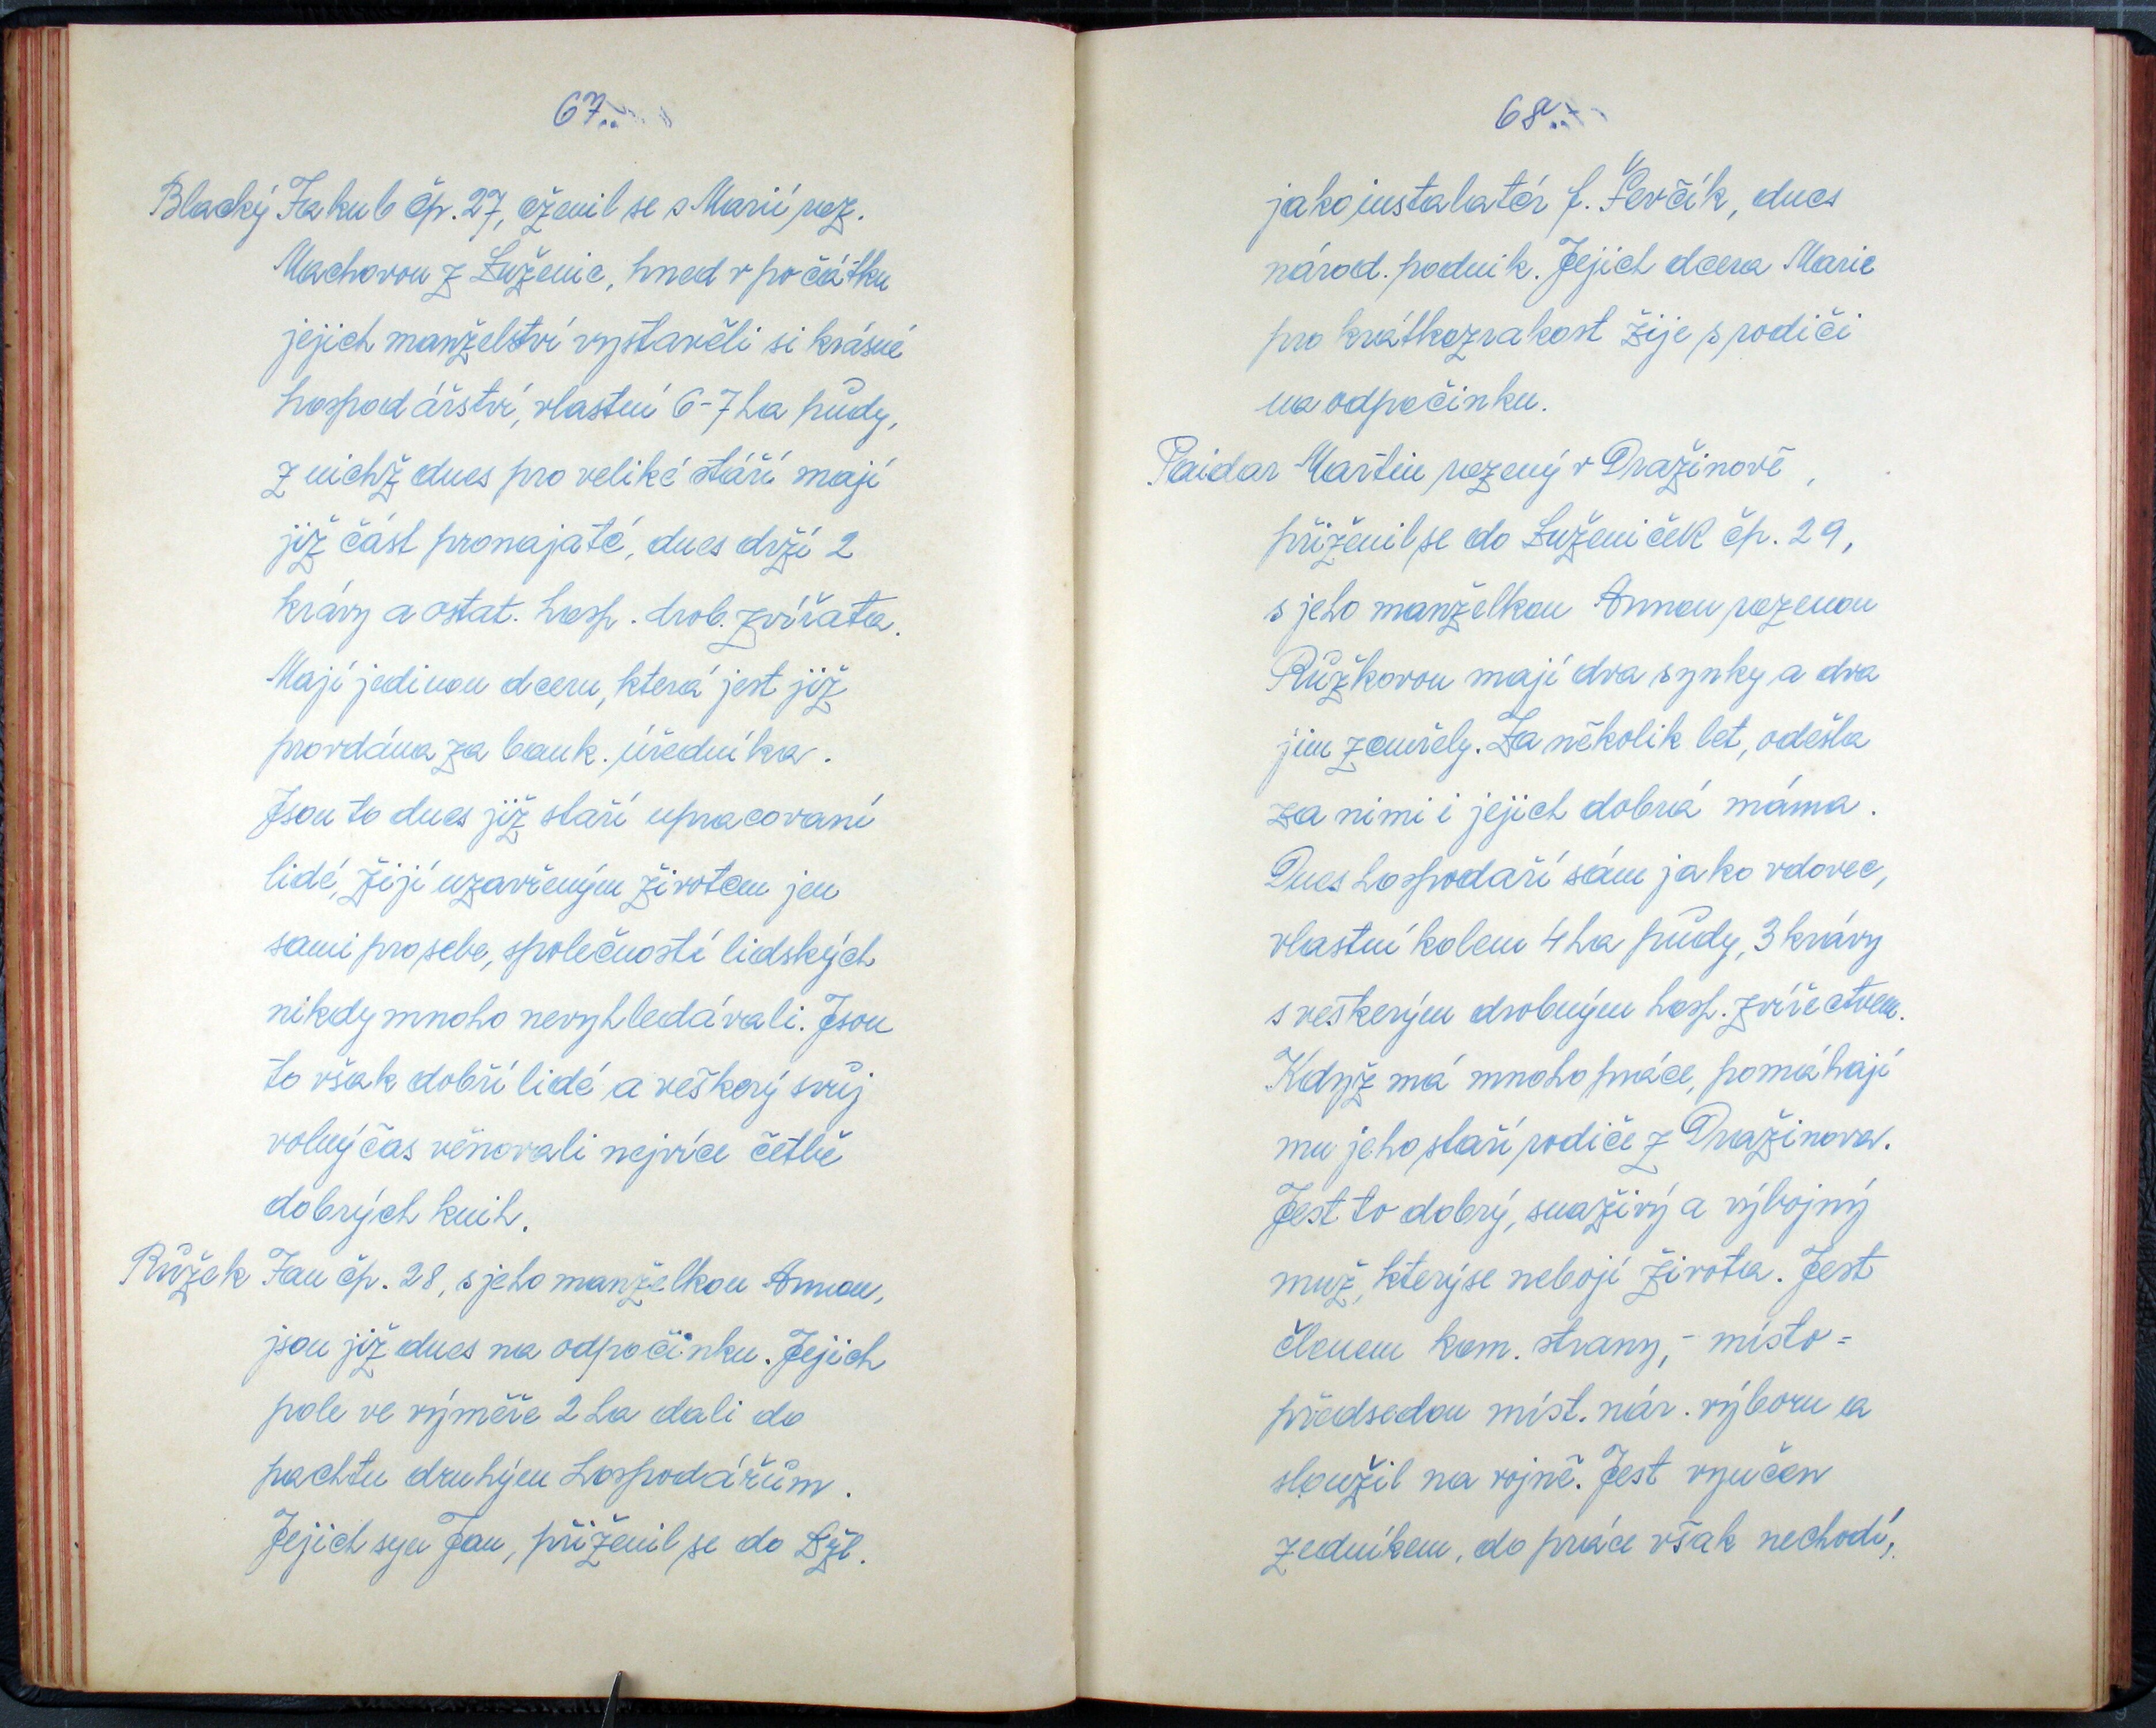 67.
Blacký Jakub čp. 27, oženil se s Marií roz.
Machovou z Luženic, hned v počátku
jejich manželství vystavěli si krásné
hospodářství, vlastní 6-7 ha půdy,
z nichž dnes pro veliké stáří mají
již část pronajaté, dnes drží 2
krávy a ostat. hosp. drob. zvířata.
Mají jedinou dceru, která jest již
provdána za bank. úředníka.
Jsou to dnes již staří upracovaní
lidé, žijí uzavřeným životem jen
sami pro sebe, společností lidských
nikdy mnoho nevyhledávali. Jsou
to však dobří lidé a veškerý svůj
volný čas věnovali nejvíce četbě
dobrých knih.
Růžek Jan čp. 28, s jeho manželkou Annou,
jsou již dnes na odpočinku. Jejich
pole ve výměře 2 ha dali do
pachtu druhým hospodářům.
Jejich syn Jan, přiženil se do
68.
jako instalatér f. Ševčík, dnes
národ. podnik. Jejich dcera Marie
pro krátkozrakost žije s rodiči
na odpočinku.
Paidar Martin rozený v Dražinově,
přiženil se do Luženiček čp. 29,
s jeho manželkou Annou rozenou
Růžkovou mají dva synky a dva
jim zemřely. Za několik let, odešla
za nimi i jejich dobrá máma.
Dnes hospodaří sám jako vdovec,
vlastní kolem 4 ha půdy, 3 krávy
s veškerým drobným hosp. zvířectvem.
Když má mnoho práce, pomáhají
mu jeho staří rodiče z Dražinova.
Jest to dobrý, snaživý a výbojný
muž, který se nebojí života. Jest
členem kom. strany, - místo=
předsedou míst. nár. výboru a
sloužil na vojně. Jest vyučen
zedníkem, do práce však nechodí,